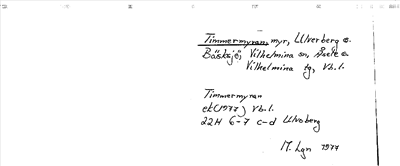 Timmermyran, myr, Ulvberg o.
Bäsksjö, Vilhelmina sn, Åsele o.
Vilhelmina tg, Vb. l.
Timmermyran
ek (1977) Vb. l.
22H 6-7 c-d Ulvoberg
M. Lgn 1977